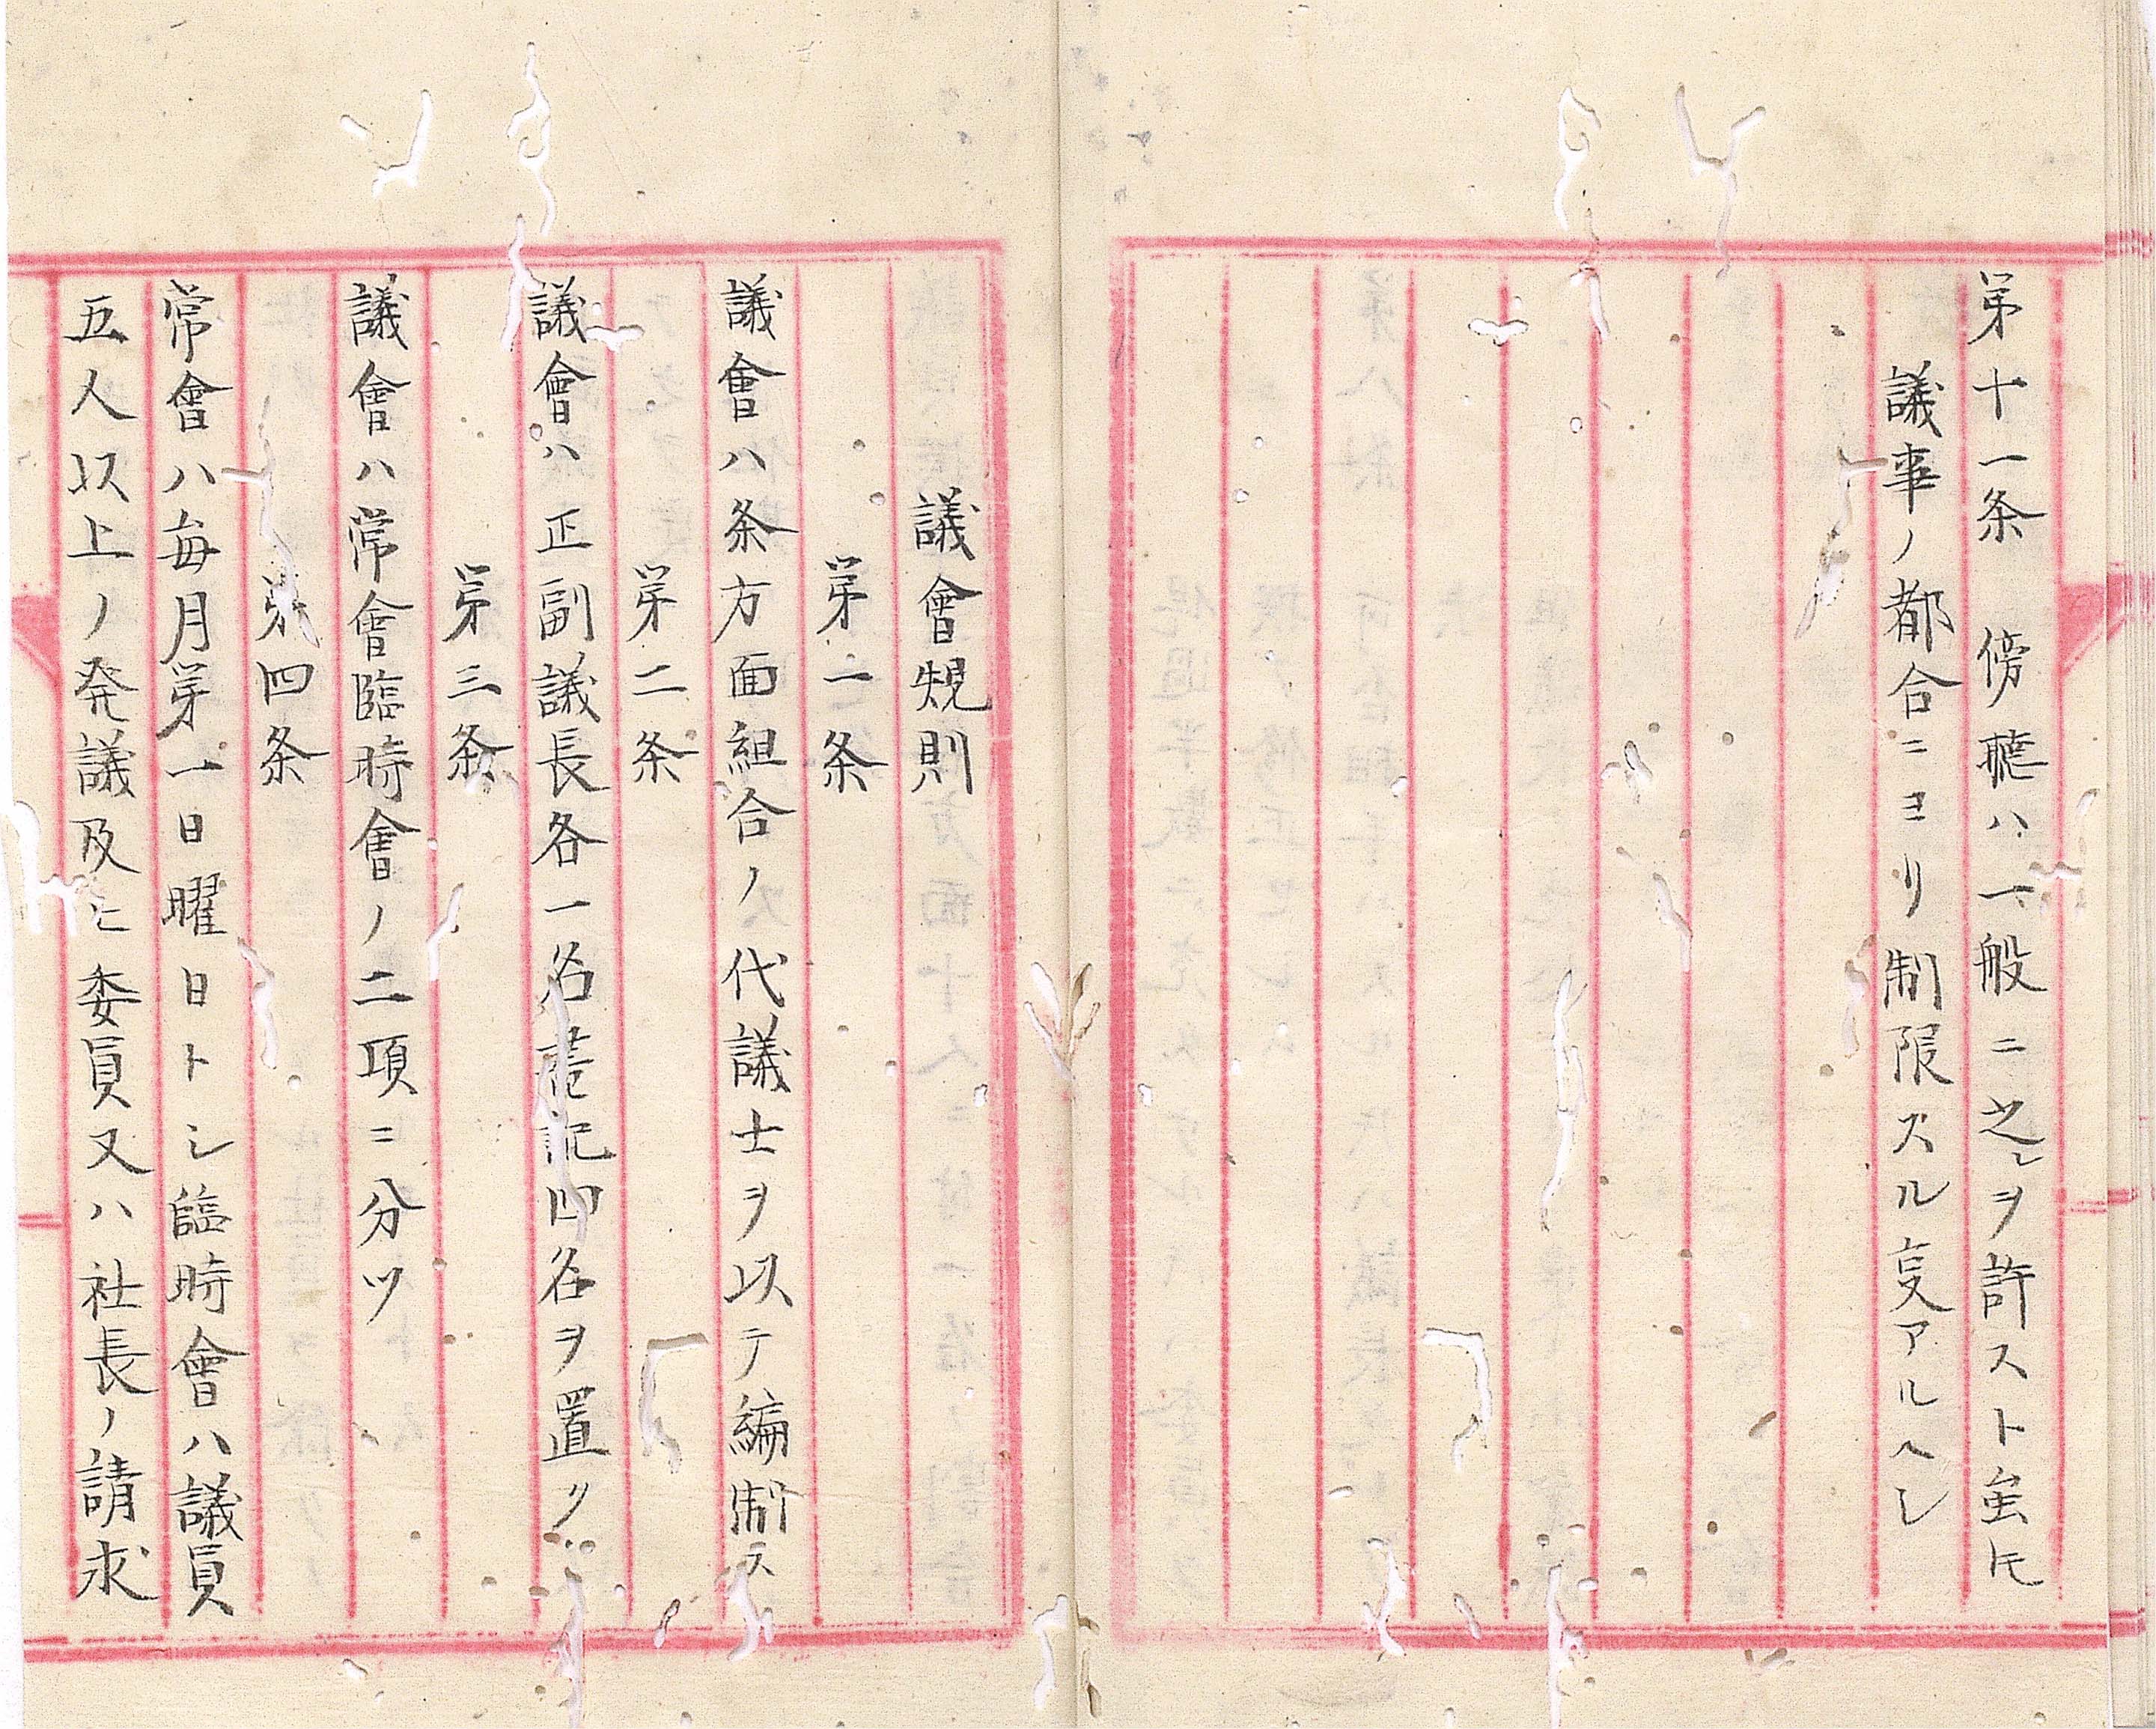 第十一条　傍聴ハ一般ニ之レヲ許スト雖𪜈
議事ノ都合ニヨリ制限スル叓アルヘシ
議會規則
第一条
議會ハ条方面組合ノ代議士ヲ以テ編制ス
第二条
議會ハ正副議長各一名書記四名ヲ置ク
第三条
議會ハ常會臨時會ノ二項ニ分ツ
第四条
常會ハ毎月第一日曜日トシ臨時會ハ議員
五人以上ノ発議及ヒ委員又ハ社長ノ請求